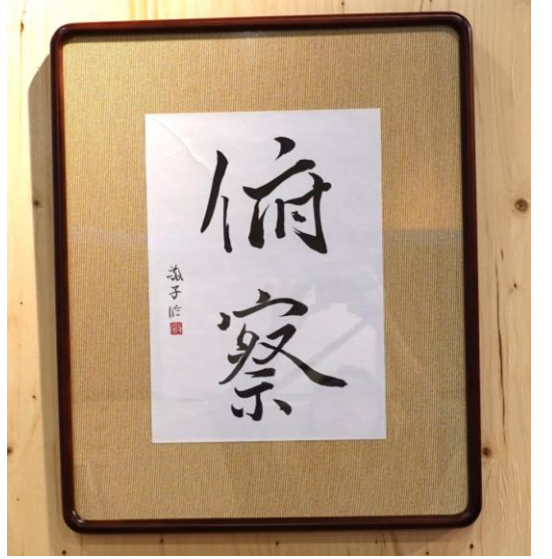 俯察
敬子臨